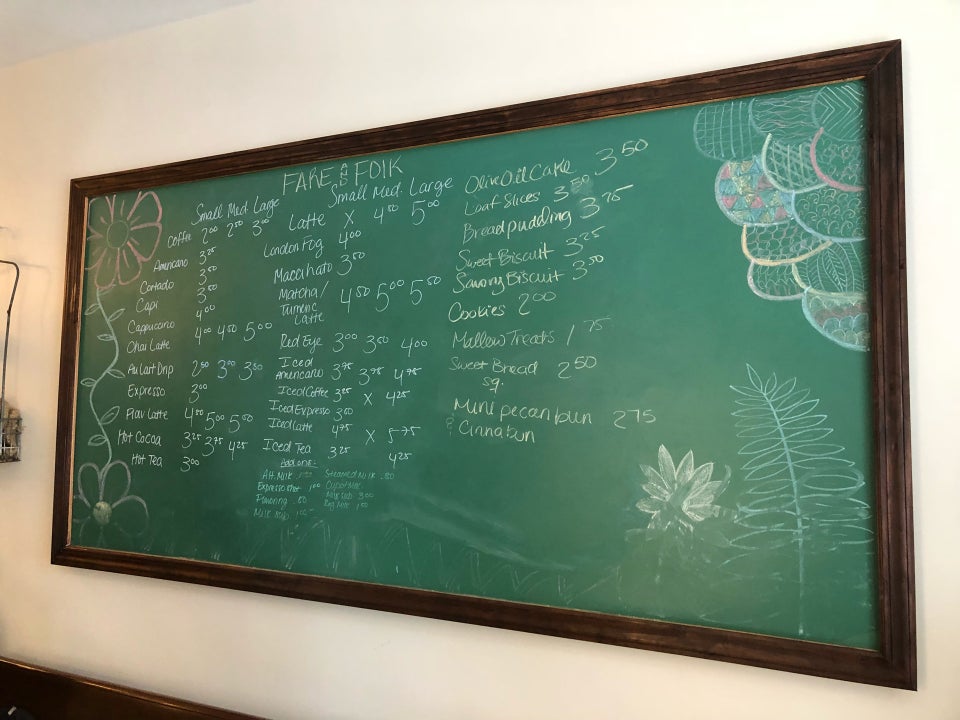 FARE AND FOIK
Small Med. Large
Coffee 2.00 2.50 3.00
Americano 3.25
Cortado 3.50
Capi 3.50
Cappuccino 4.00
Chai Latte 4.00 4.50 5.00
Au Lait Drip 2.50 3.00 3.50
Expresso 3.00
Flav Latte 4.50 5.00 5.50
Hot Cocoa 3.25 3.75 4.25
Hot Tea 3.00
Small Med. Large
Latte X 4.50 5.00
London Fog 4.00
Macchiato 3.50
Matcha/
Tumeric 4.50 5.00 5.50
Latte
Red Eye 3.00 3.50 4.00
Iced
Americano 3.75 4.75
Iced Coffee 3.25 X 4.25
Iced Expresso 3.50
Iced Latte 4.75 X 5.75
Iced Tea 3.25 4.25
Add ons:
Alt. Milk
Expresso Shot 1.00
Flavoring .50
Milk Sub. 1.00
Steamed Milk .50
Olive Oil Cake 3.50
Loaf Slices 3.50
Bread pudding 3.75
Sweet Biscuit 3.25
Savory Biscuit 3.50
Cookies 2.00
Mallow Treats 1.75
Sweet Bread 2.50
sq.
Mini pecan bun 2.75
& Cinnabun